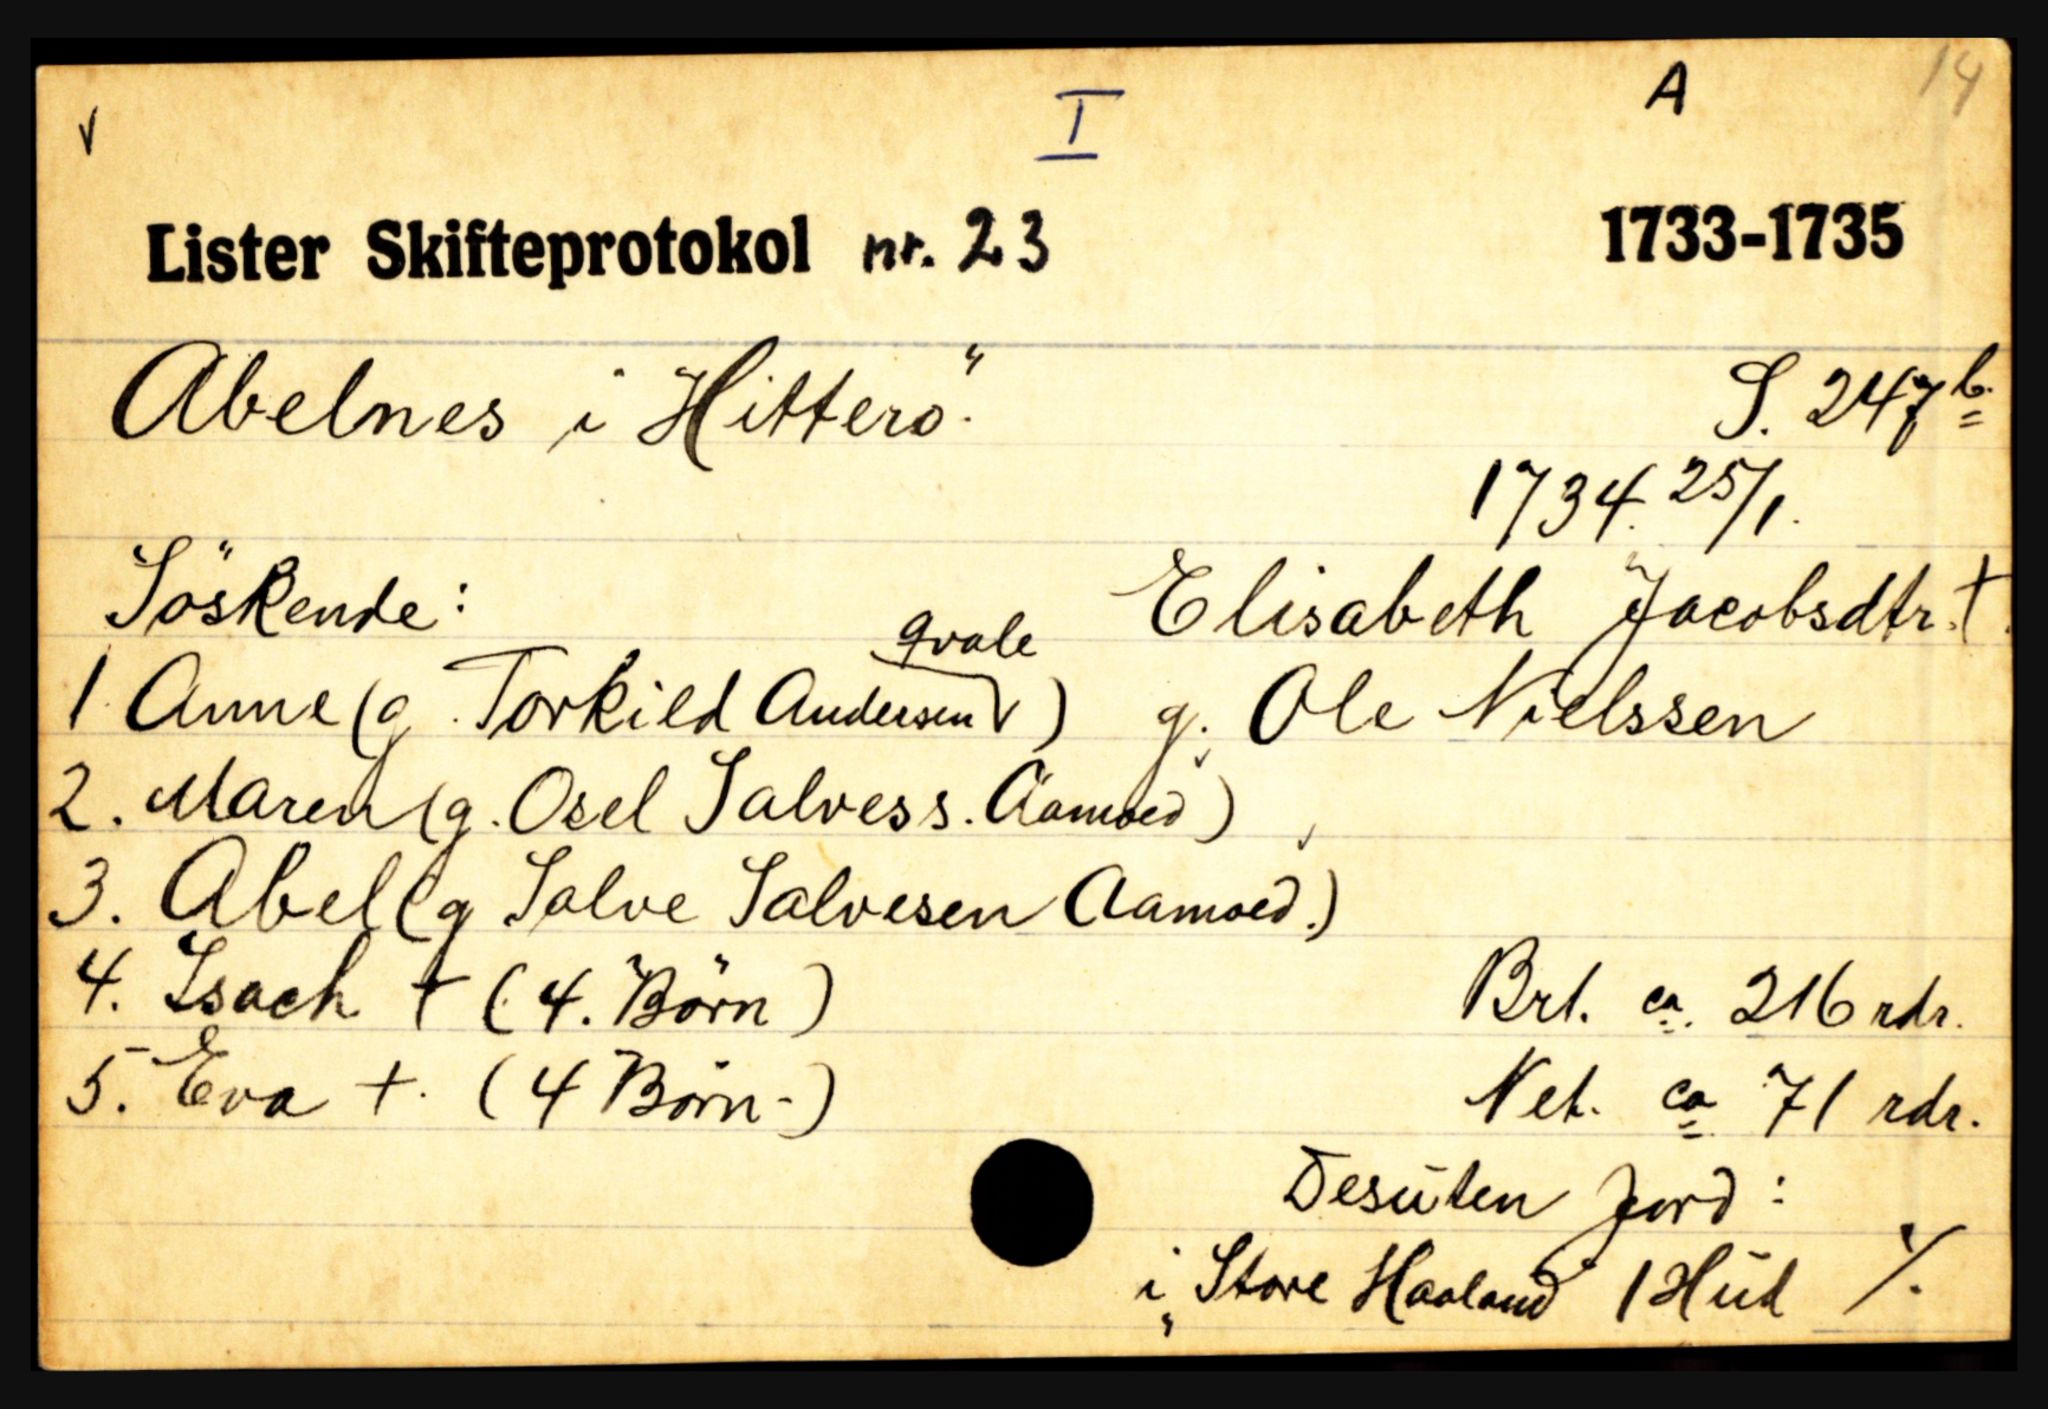 v I A 14
Lister Skifteprotokol nr. 23 1733-1735
Abelnes i Hitterö. S. 247 b.
1734. 25/1.
Söskende: Elisabeth Jacobsdtr. †.
qvale
1. Anne (g. Torkild Andersen v) g. Ole Nielssen
2. Maren (g. Osel Salvess. Aamoed)
3. Abel (g Salve Salvesen Aamoed.)
4. Isach † (4. Börn) Brt. ca. 216 rdr.
5. Eva †. (4 Börn-) Net. ca 71 rdr.
Desuten Jord:
i Store Haaland 1 Hud ./.
"